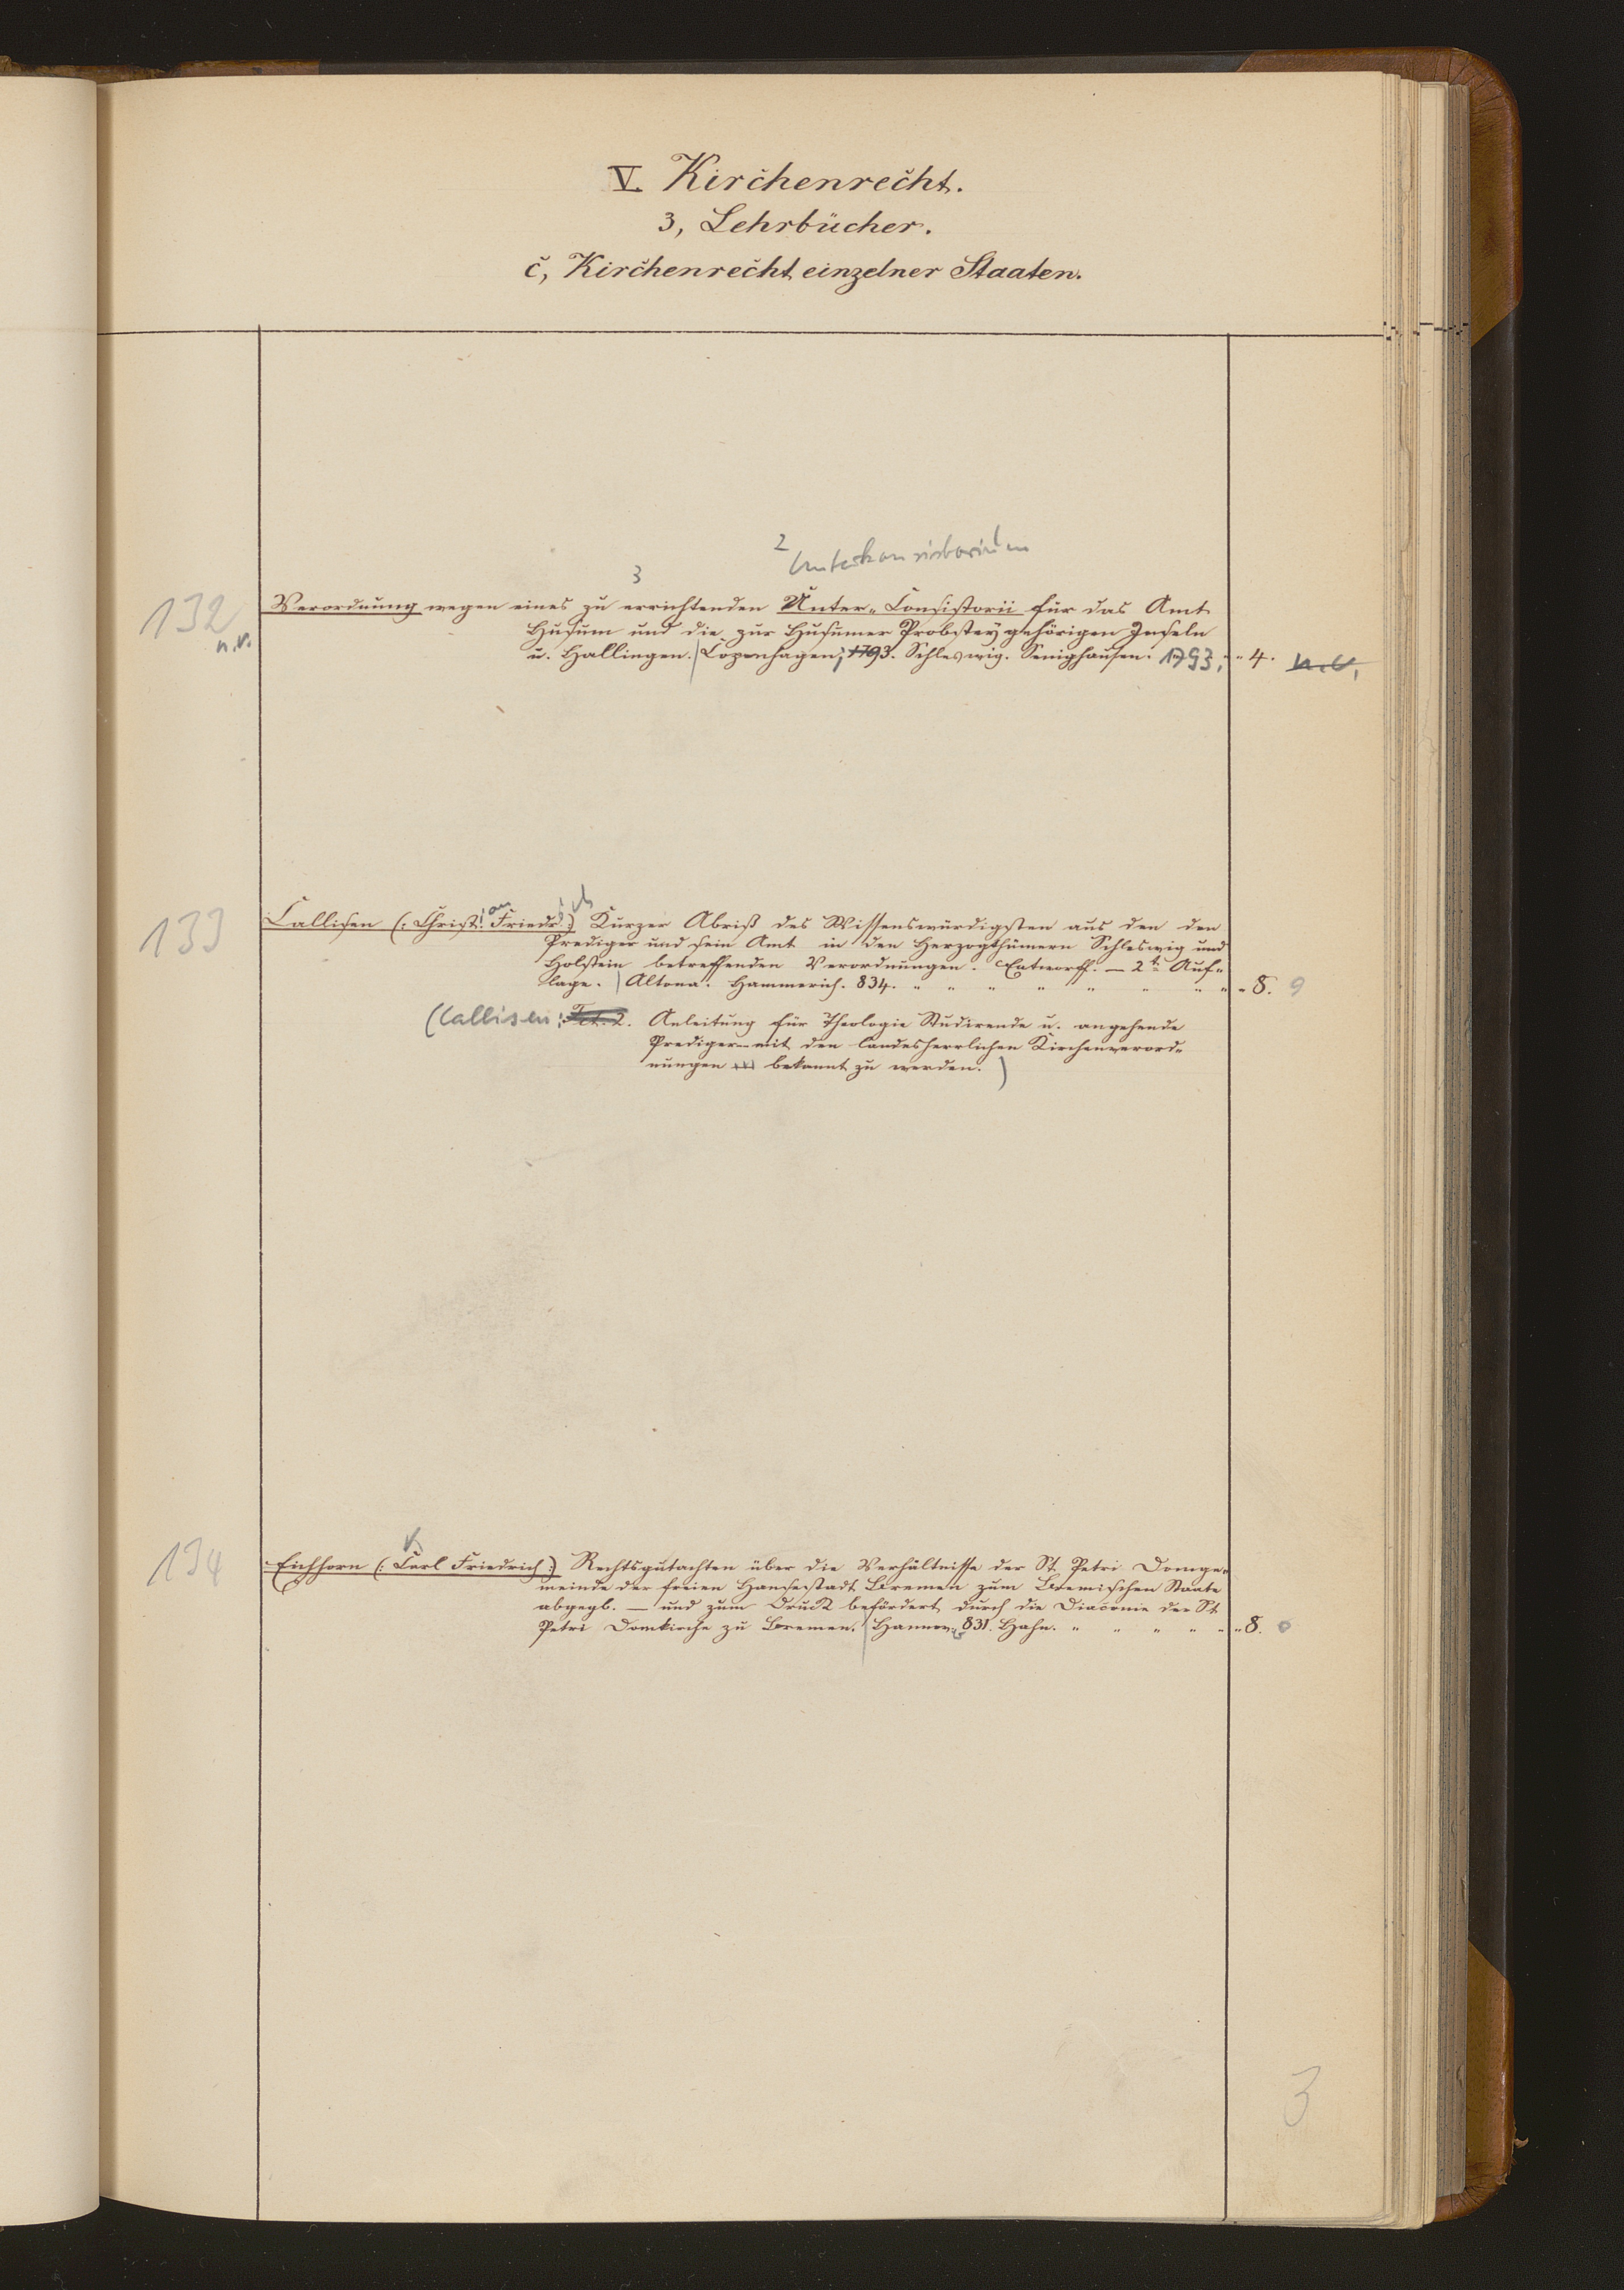 V. Kirchenrecht.
3, Lehrbücher.
c, Kirchenrecht einzelner Staaten.
2 Unterkonsistorium
3
132 Verordnung wegen eines zu errichtenden Unter-Consistorii für das Amt
n.v. Husum und die zur Husumer Probstey gehörigen Inseln
u. Halligen. Copenhagen; 1793. Schleswig. 1793. " 4. n.v.
ian ich
133 Callisen (: Christ. Friedr. :) Kurzer Abriß des Wissenswürdigsten aus den den
Prediger und sein Amt in den Herzogthümern Schleswig und
Holstein betreffenden Verordnungen. Entworff. — 2te Auf-
lage. Altona. Hammerich. 834. " " " " " " " " " 8. 9
(Callisen: Tit. 2. Anleitung für Theologie Studirende u. angehende
Prediger mit den landesherrlichen Kirchenverord-
nungen bekannt zu werden.)
K
134 Eichhorn (: Carl Friedrich :) Rechtsgutachten über die Verhältnisse der St. Petri Domge-
meinde der freien Hansestadt Bremen zum Bremischen Staate
abgegb. — und zum Druck befördert durch die Diaconie der St.
Petri Domkirche zu Bremen. Hannov. 831. Hahn. " " " " " " 8. 0
3